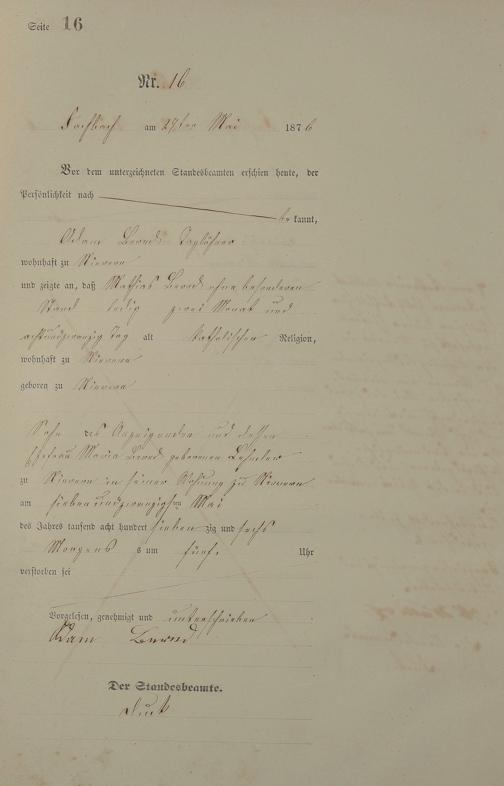 Seite 16
Nr. 16
Fachbach am 27ten Mai 1876
Vor dem unterzeichneten Standesbeamten erschien heute, der
Persönlichkeit nach
be kannt,
Adam Bernd Taglöhner
wohnhaft zu Nievern
und zeigte an, daß Mathias Bernd ohne besonderen
Stand ledig zwei Monat und
achtundzwanzig Tag alt katholischer Religion,
wohnhaft zu Nievern
geboren zu Nievern
Sohn des Anzeigenden und dessen
Ehefrau Maria Bernd geborenen
zu Nievern in seiner Wohnung zu Nievern
am siebenundzwanzigsten Mai
des Jahres tausend acht hundert sieben zig und sechs
Morgens um fünf Uhr
verstorben sei
Vorgelesen, genehmigt und unterschrieben
Adam Bernd
Der Standesbeamte.